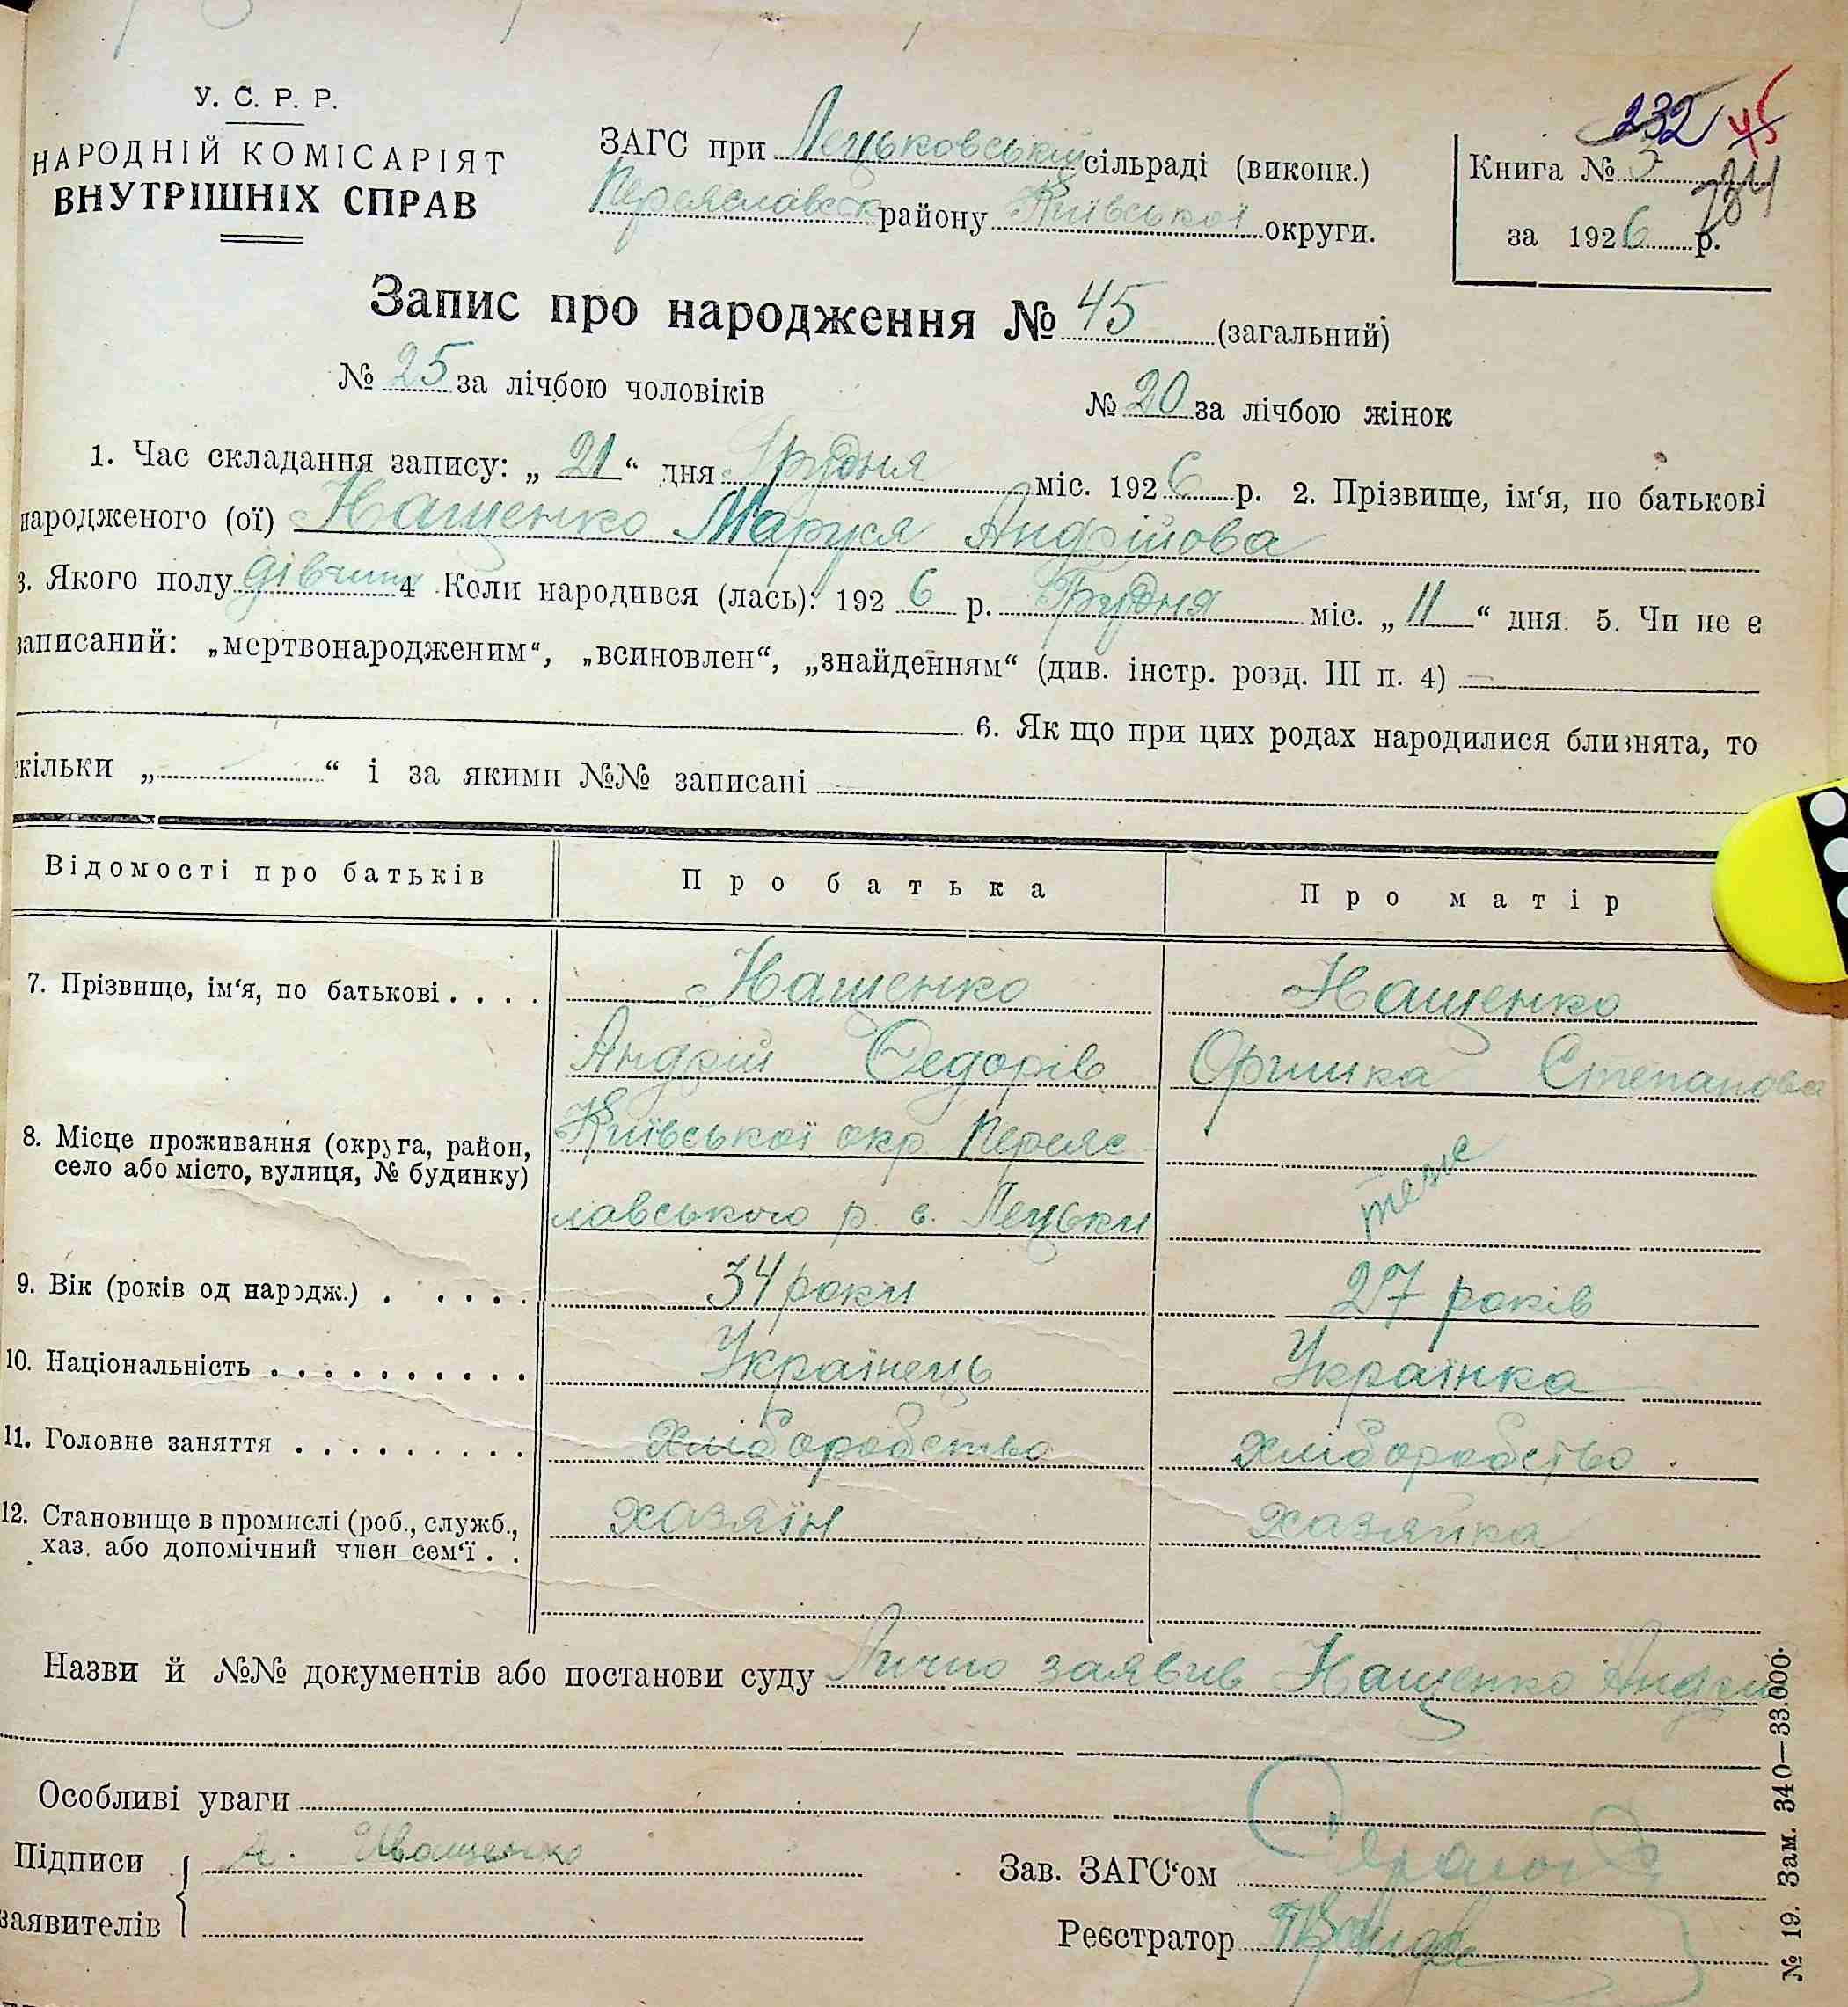 232 45
У. С. Р. Р.
НАРОДНІЙ КОМІСАРІЯТ
ВНУТРІШНІХ СПРАВ
ЗАГС при Лецьковській сільраді (виконк.)
Переяславськ району Київської округи.
Книга № 3
234
за 1926 р.
Запис про народження № 45 (загальний)
№ 25 за лічбою чоловіків № 20 за лічбою жінок
1. Час складання запису: „ 21 “ дня Грудня міс. 1926 р. 2. Прізвище, ім‘я, по батькові
народженого (ої) Іващенко Маруся Андрійова
3. Якого полу дівчина 4 Коли народився (лась): 1926 р. Грудня міс. „ 11 “ дня. 5. Чи не є
записаний: „мертвонародженим“, „всиновлен“, „знайденням“ (див. інстр. розд. III п. 4) —
6. Як що при цих родах народилися близнята, то
скільки „ “ і за якими №№ записані
Відомості про батьків Про батька Про матір
7. Прізвище, ім‘я, по батькові . . . . Іващенко Іващенко
Андрій Федорів Оришка Степанова
8. Місце проживання (округа, район, село або місто, вулиця, № будинку) Київської окр Переяс
лавського р. с. Лецьки теже
9. Вік (років од народж.) . . . . . 34 роки 27 років
10. Національність . . . . . . . . . . Українець Українка
11. Головне заняття . . . . . . . . . Хліборобство хліборобство .
12. Становище в промислі (роб., служб., хаз. або допомічний член сем‘ї . . хазяїн хазяйка
Назви й №№ документів або постанови суду Лично заявив Іващенко Андрій
Особливі уваги
Підписи заявителів А. Иващенко
Зав. ЗАГС‘ом
Реєстратор
№ 19. Зам. 340—33.000.